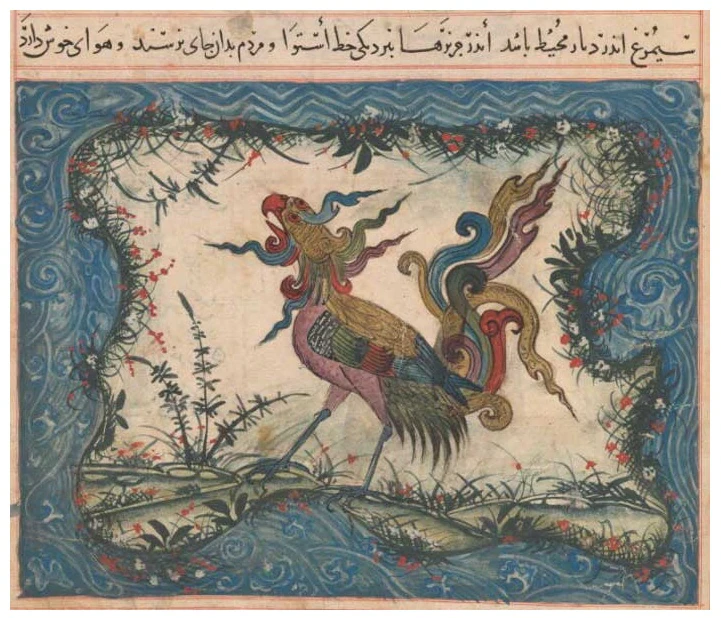 سیمرغ اندر دیار محیط باشد اندر جزیرَها بنزدیکی خط أستوا و مردم بدان جای نرسند و هوای خوش دارد